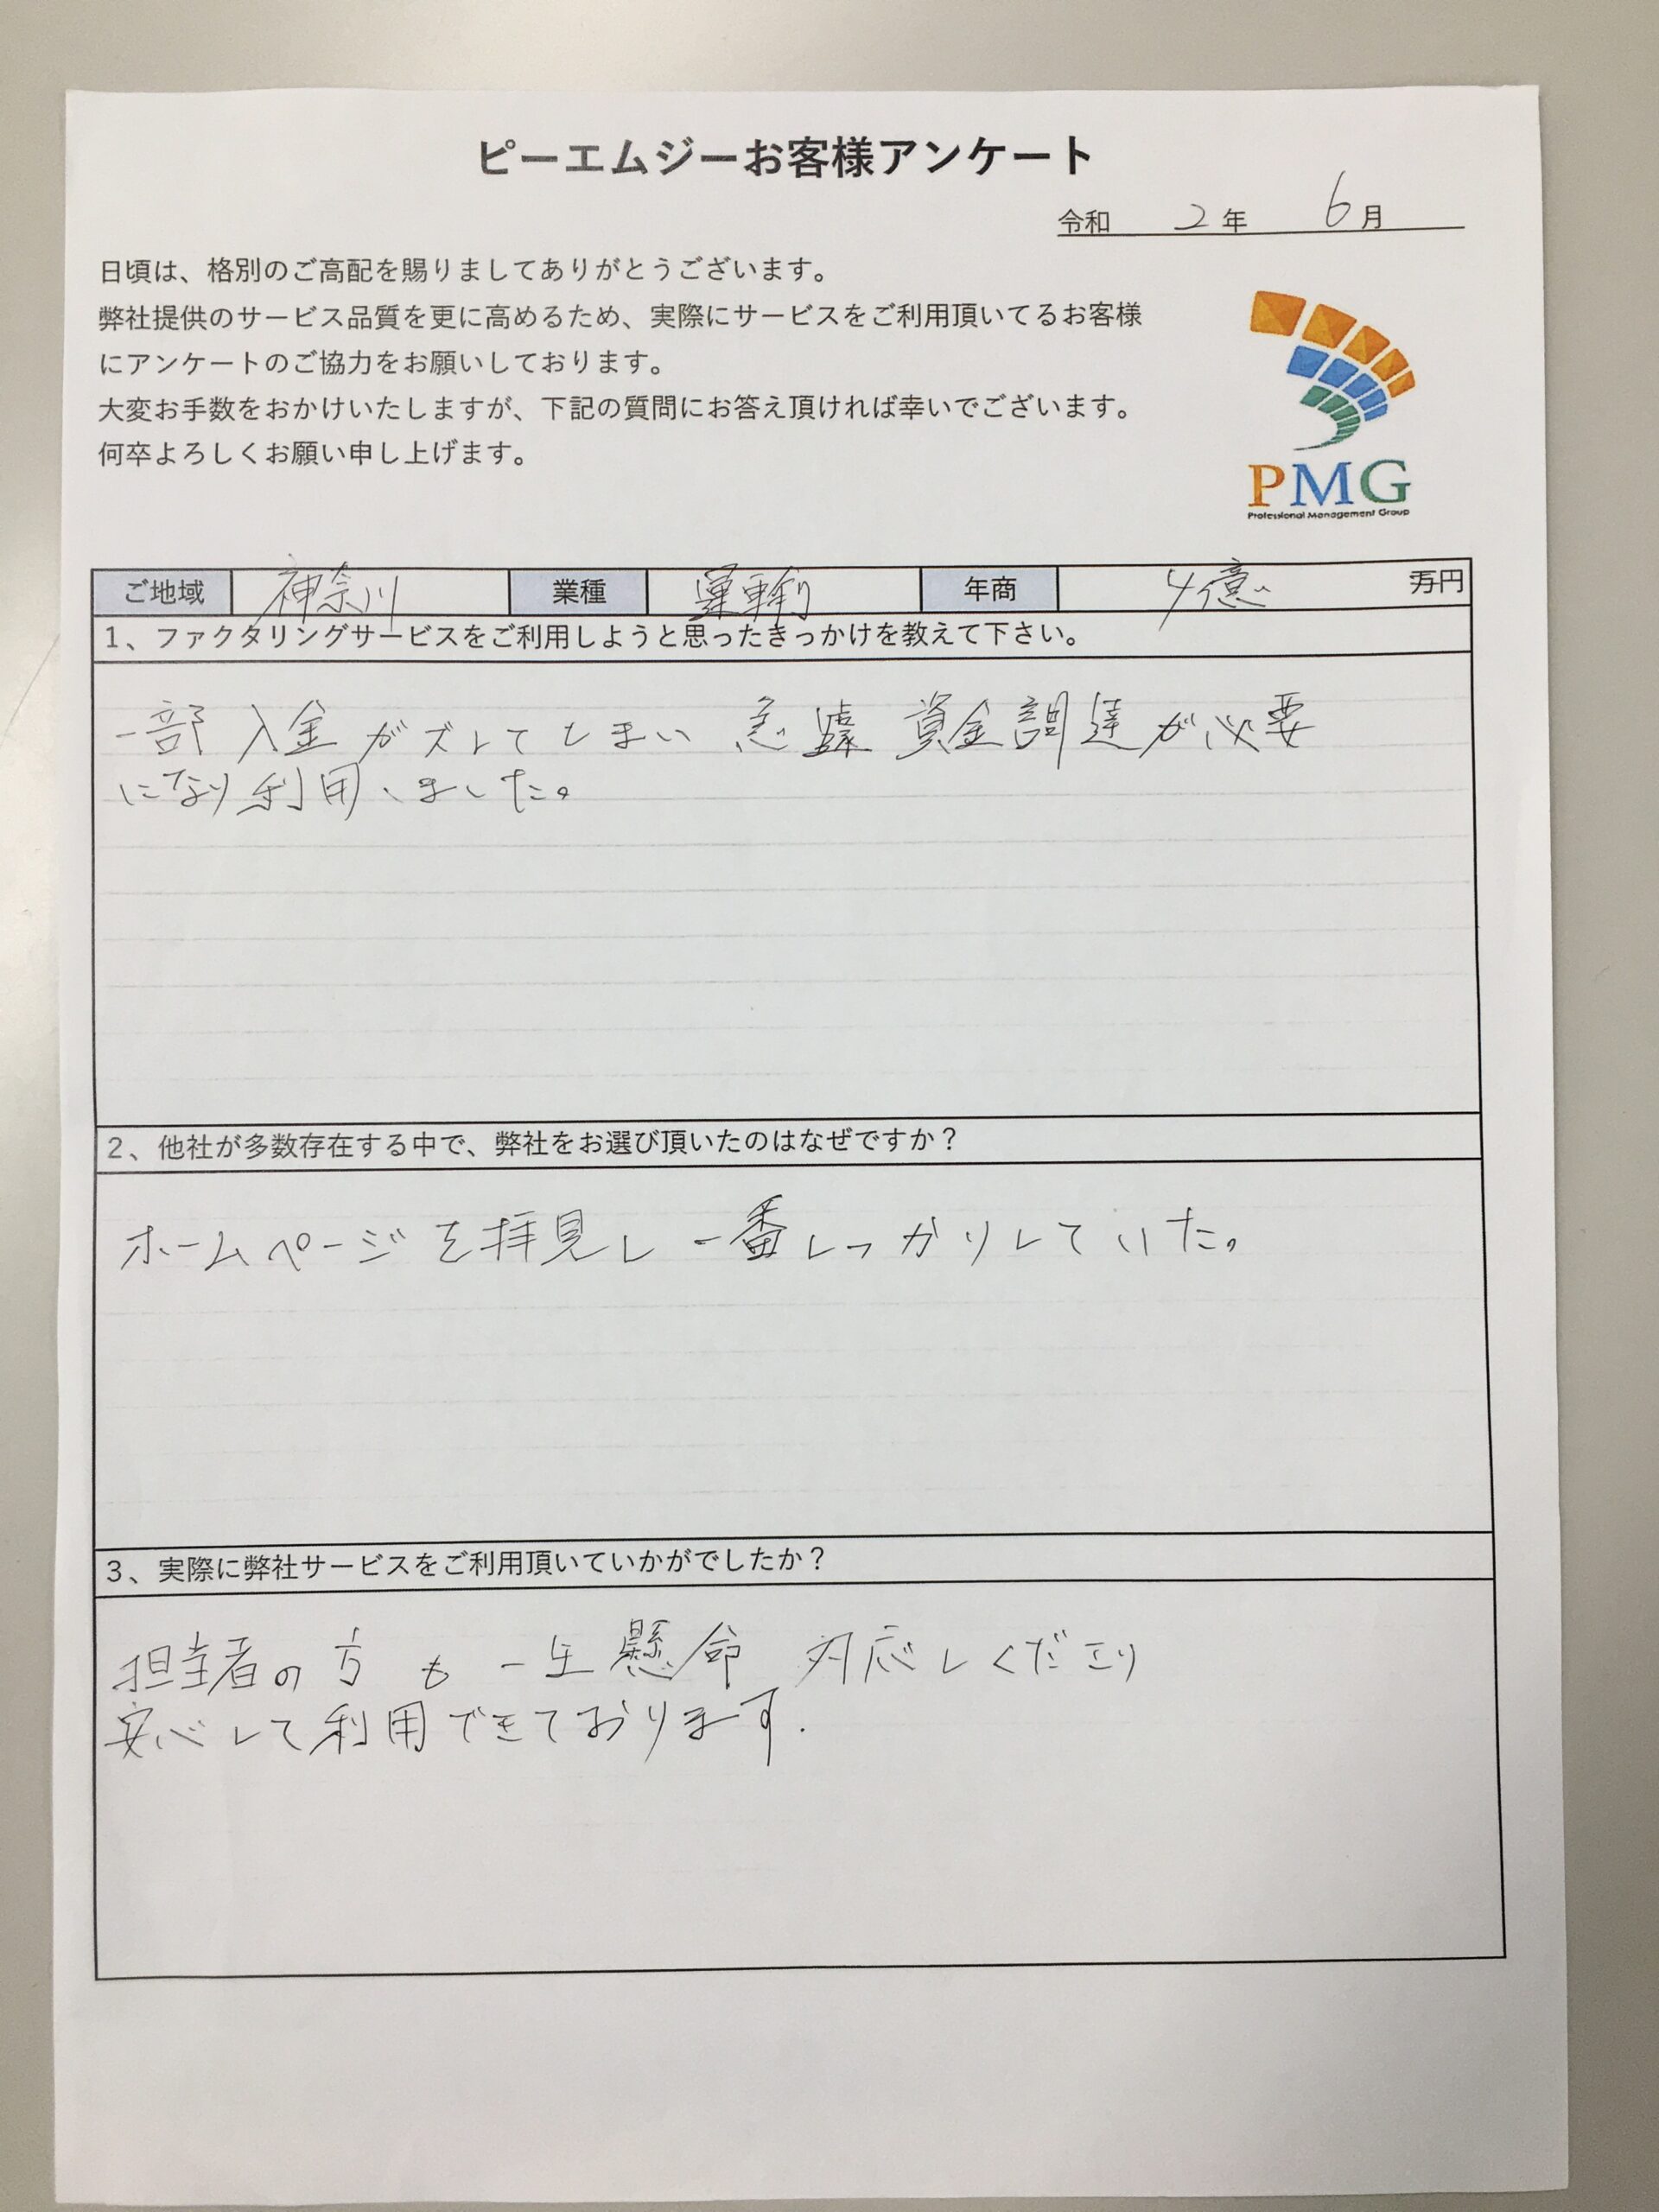 ピーエムジーお客様アンケート
令和 2年 6月
日頃は、格別のご高配を賜りましてありがとうございます。
弊社提供のサービス品質を更に高めるため、実際にサービスをご利用頂いてるお客様
にアンケートのご協力をお願いしております。
大変お手数をおかけいたしますが、下記の質問にお答え頂ければ幸いでございます。
何卒よろしくお願い申し上げます。
PMG
Professional Management Group
ご地域 神奈川 業種 運輸 年商 4億 万円
1、ファクタリングサービスをご利用しようと思ったきっかけを教えて下さい。
一部 入金がズレてしまい 急遽 資金調達が必要
になり利用しました。
2、他社が多数存在する中で、弊社をお選び頂いたのはなぜですか？
ホームページを拝見し一番しっかりしていた。
3、実際に弊社サービスをご利用頂いていかがでしたか？
担当者の方も一生懸命 対応しくださり
安心して利用できております.